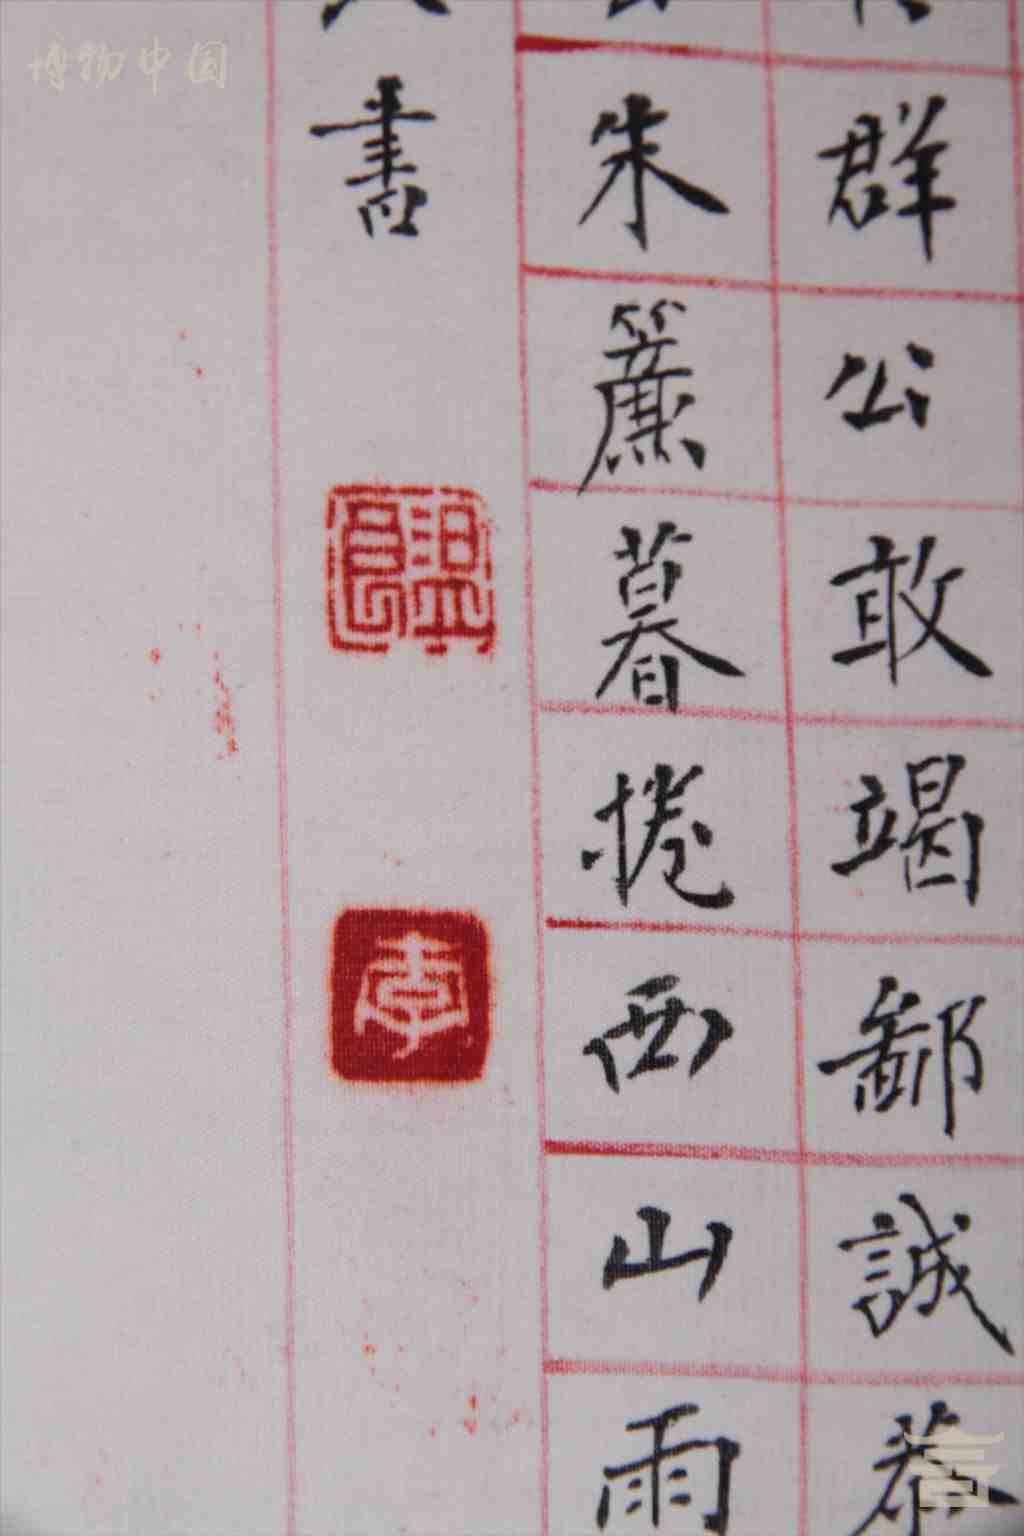 群公敢竭鄙誠恭
朱簾暮捲西山雨
書
李
博物中国